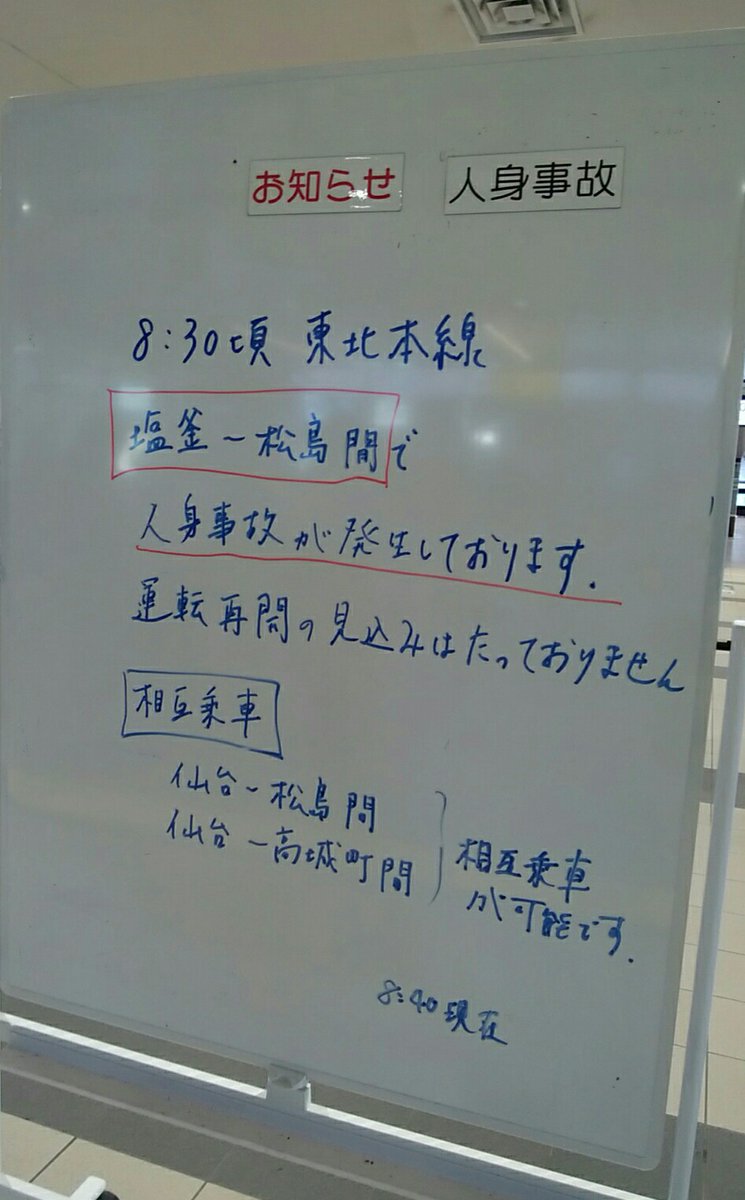 お知らせ 人身事故
8:30頃 東北本線
塩釜~松島間で
人身事故が発生しております.
運転再開の見込みはたっておりません
相互乗車
仙台~松島間
仙台~高城町間
相互乗車
が可能です.
8:40現在